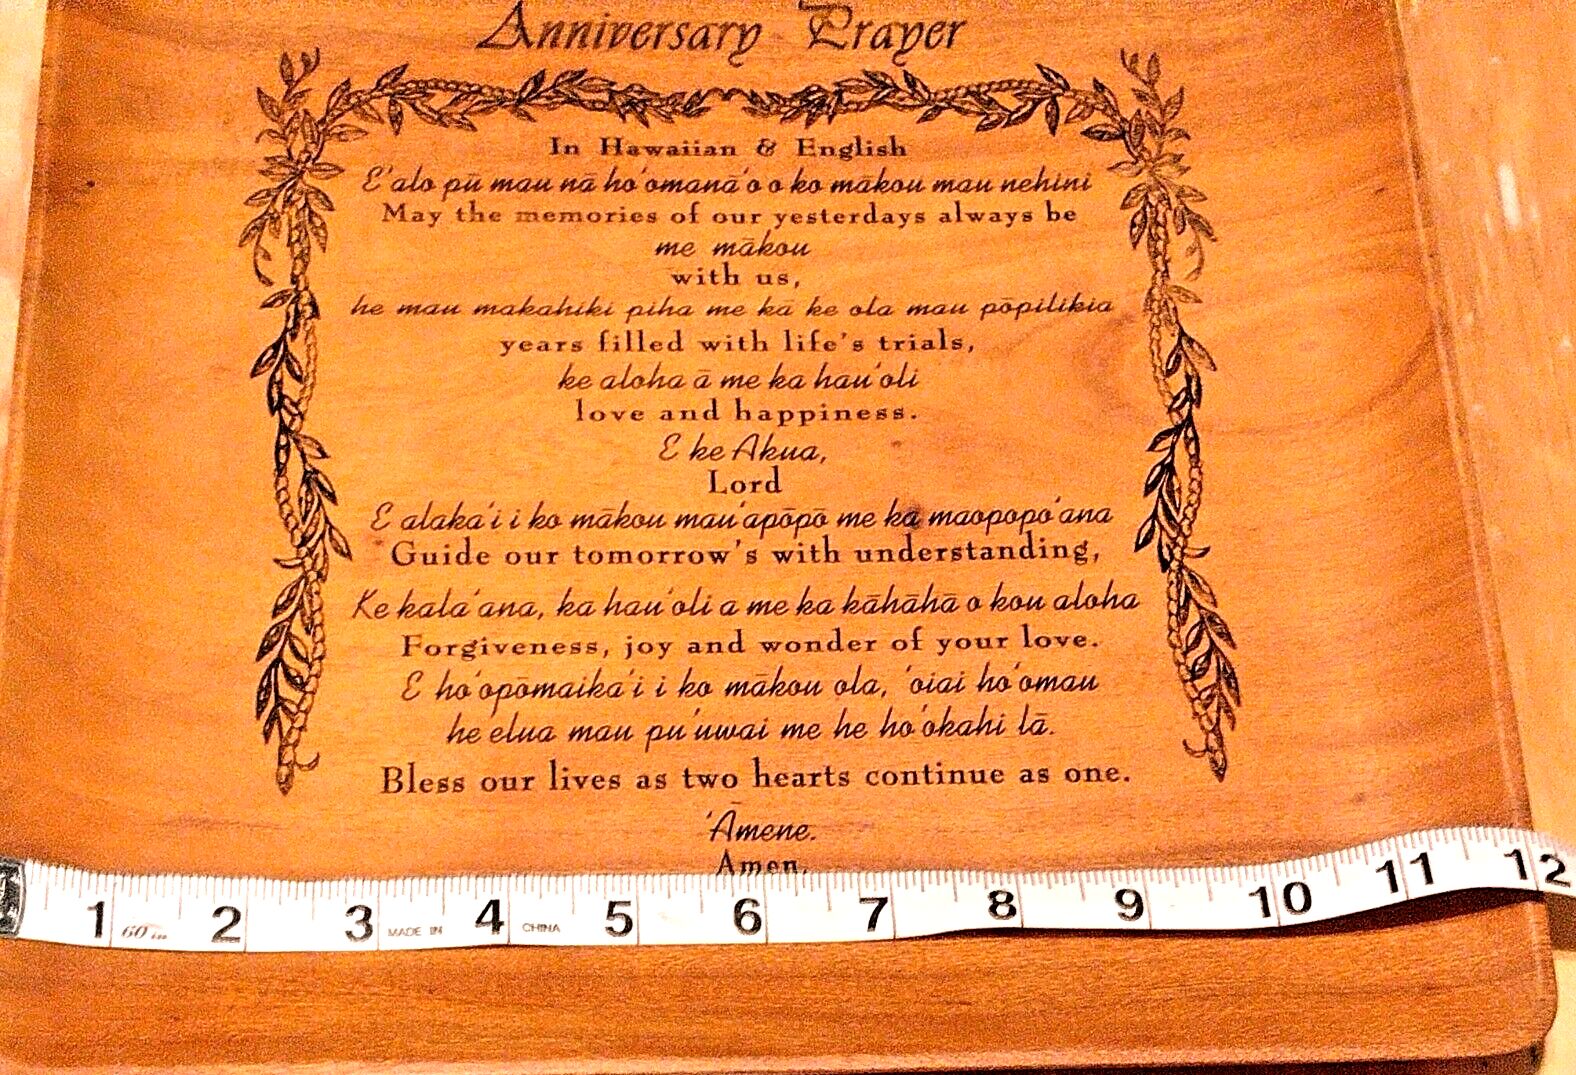 Anniversary Prayer
In Hawaiian & English
E'alo pū mau nā ho'omanā'o o ko mākou mau nehini
May the memories of our yesterdays always be
me mākou
with us,
he mau makahiki piha me kā ke ola mau pōpilikia
years filled with life's trials,
ke aloha ā me ka hau'oli
love and happiness.
E ke Akua,
Lord
E alaka'i i ko mākou mau'apōpō me ka maopopo'ana
Guide our tomorrow's with understanding,
Ke kala'ana, ka hau'oli a me ka kāhāhā o kou aloha
Forgiveness, joy and wonder of your love.
E ho'opōmaika'i i ko mākou ola, 'oiai ho'omau
he elua mau pu'uwai me he ho'okahi lā.
Bless our lives as two hearts continue as one.
'Āmene.
Amen.
1 60 in. 2 3 MADE IN 4 CHINA 5 6 7 8 9 10 11 12